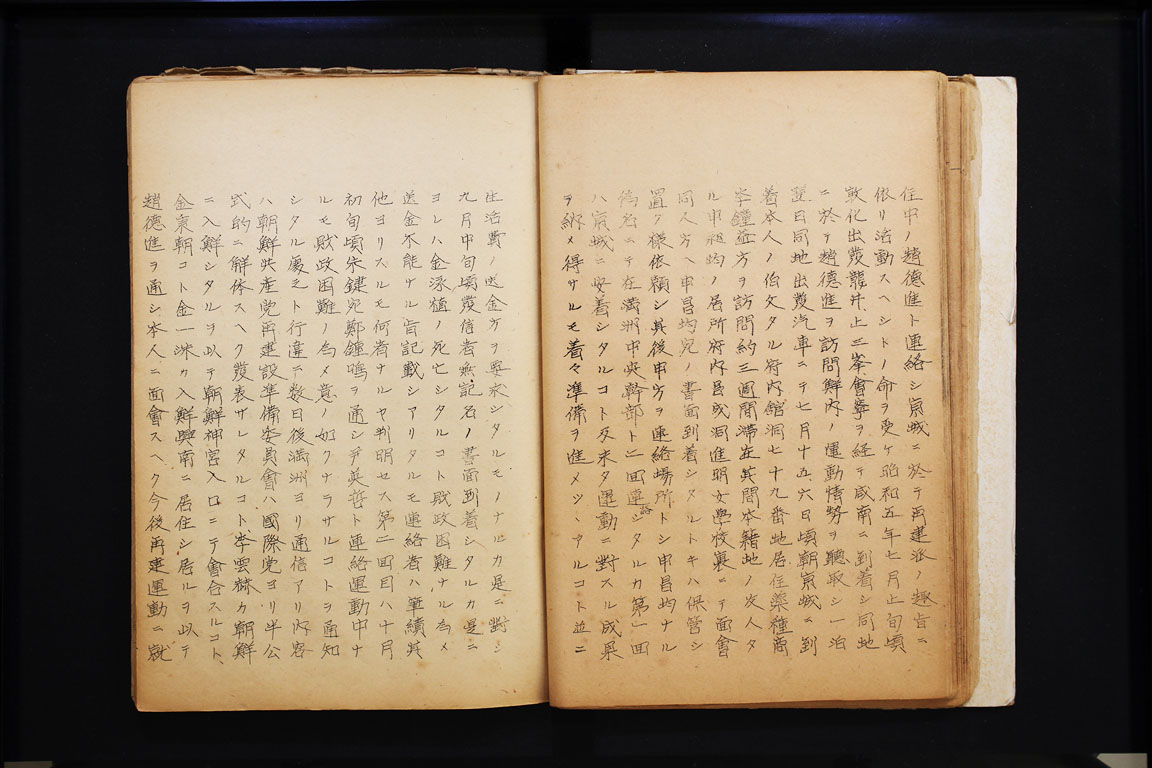 住中ノ趙德進ト連絡シ京城ニ於テ再建派ノ趣旨ニ
依リ活動スヘシトノ命ヲ受ケ昭和五年七月上旬頃
敦化出發龍井上三峯會寧ヲ経テ咸南ニ到着シ同地
ニ於テ趙德進ヲ訪問鮮内ノ運動情勢ヲ聽取シ一泊
翌日同地出發汽車ニテ七月十五、六日頃朝京城ニ到
着本人ノ伯父タル府内館洞七十九番地居住藥種商
李鐘益方ヲ訪問約三週間滞在其間本籍地ノ友人タ
ル申昌均ノ居所府内昌成洞進明女學校裏ニテ面會
同人方ヘ申昌均宛ノ書面到着シタルトキハ保管シ
置ク様依頼シ其後申方ヲ連絡場所トシ申昌均ナル
偽名ニテ在満洲中央幹部ト二回連絡シタルカ第一回
ハ京城ニ安着シタルコト及未タ運動ニ對スル成果
ヲ納メ得サルモ着々準備ヲ進メツヽアルコト並ニ
生活費ノ送金方ヲ要求シタルモノナルカ是ニ對シ
九月中旬頃發信者無記名ノ書面到着シタルカ是ニ
ヨレハ金泳植ノ死亡シタルコト財政困難ナル為メ
送金不能ナル旨記載シアリタルモ連絡者ハ筆續其
他ヨリスルモ何者ナルヤ判明セス第二回目ハ十月
初旬頃宋鍵宛鄭鍾鳴ヲ通シ尹英哲ト連絡運動中ナ
ルモ財政困難ノ為メ意ノ如クナラサルコトヲ通知
シタル處之ト行違ニ数日後満洲ヨリ通信アリ内容
ハ朝鮮共産党再建設準備委員會ハ國際党ヨリ半公
式的ニ解体スヘク發表サレタルコト李雲赫カ朝鮮
ニ入鮮シタルヲ以テ朝鮮神宮入口ニテ會合スルコト
金衰朝コト金一洙カ入鮮興南ニ居住シ居ルヲ以テ
趙德進ヲ通シ本人ニ面會スヘク今後再建運動ニ就